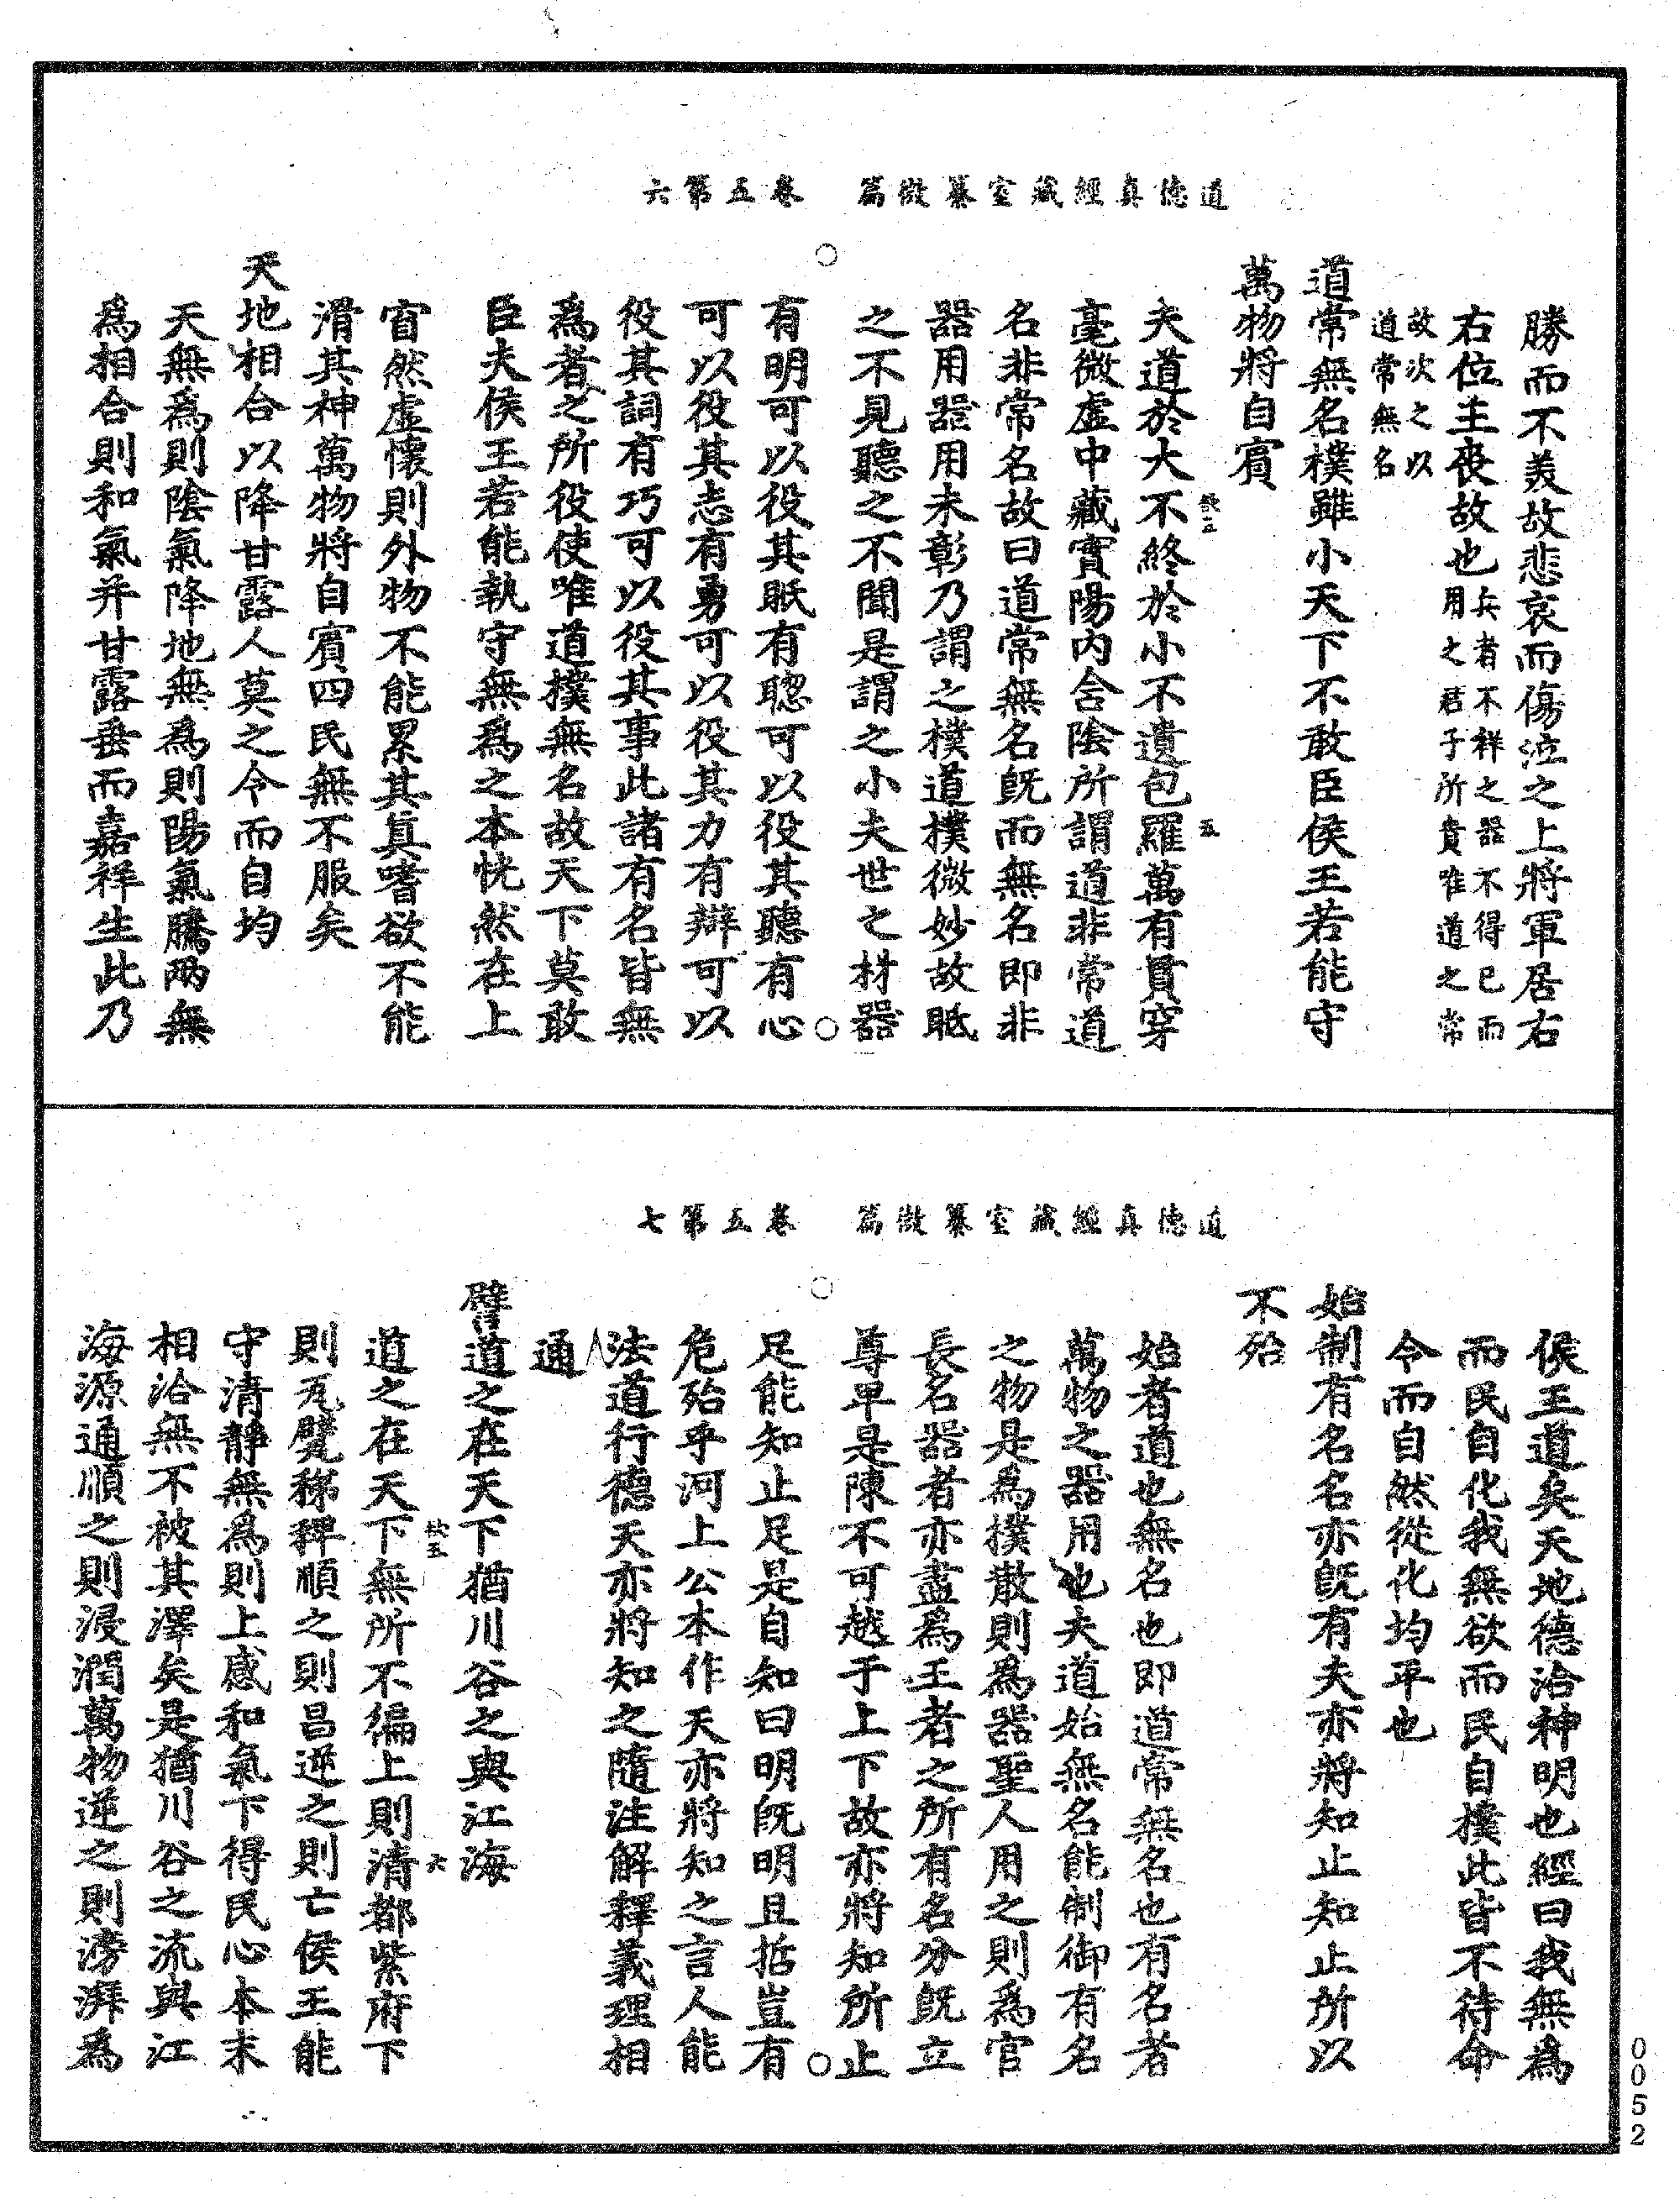 道德真經藏室纂微篇　卷五第六
勝而不美故悲哀而傷泣之上將軍居右
右位主喪故也兵者不祥之器不得已而用之君子所貴唯道之常
故次之以道常無名
道常無名樸雖小天下不敢臣侯王若能守
萬物將自賓
夫道於大不終於小不遺包羅萬有貫穿
毫微虛中藏實陽內含陰所謂道非常道
名非常名故曰道常無名既而無名即非
器用器用未彰乃謂之樸道樸微妙故眡
之不見聽之不聞是謂之小夫世之材器
有明可以役其眡有聰可以役其聽有心
可以役其志有勇可以役其力有辯可以
役其詞有巧可以役其事此諸有名皆無
為者之所役使唯道樸無名故天下莫敢
臣夫侯王若能執守無為之本恍然在上
窅然虛懷則外物不能累其真嗜欲不能
滑其神萬物將自賓四民無不服矣
天地相合以降甘露人莫之令而自均
天無為則陰氣降地無為則陽氣騰兩無
為相合則和氣并甘露垂而嘉祥生此乃
道德真經藏室纂微篇　卷五第七
侯王道矣天地德洽神明也經曰我無為
而民自化我無欲而民自樸此皆不待命
令而自然從化均平也
始制有名名亦既有夫亦將知止知止所以
不殆
始者道也無名也即道常無名也有名者
萬物之器用也夫道始無名能制御有名
之物是為樸散則為器聖人用之則為官
長名器者亦盡為王者之所有名分既立
尊卑是陳不可越于上下故亦將知所止
足能知止足是自知曰明既明且哲豈有
危殆乎河上公本作天亦將知之言人能
法道行德天亦將知之隨注解釋義理相
通
譬道之在天下猶川谷之與江海
道之在天下無所不徧上則清都紫府下
則瓦甓稊稗順之則昌逆之則亡侯王能
守清靜無為則上感和氣下得民心本末
相洽無不被其澤矣是猶川谷之流與江
海源通順之則浸潤萬物逆之則滂湃為
0052